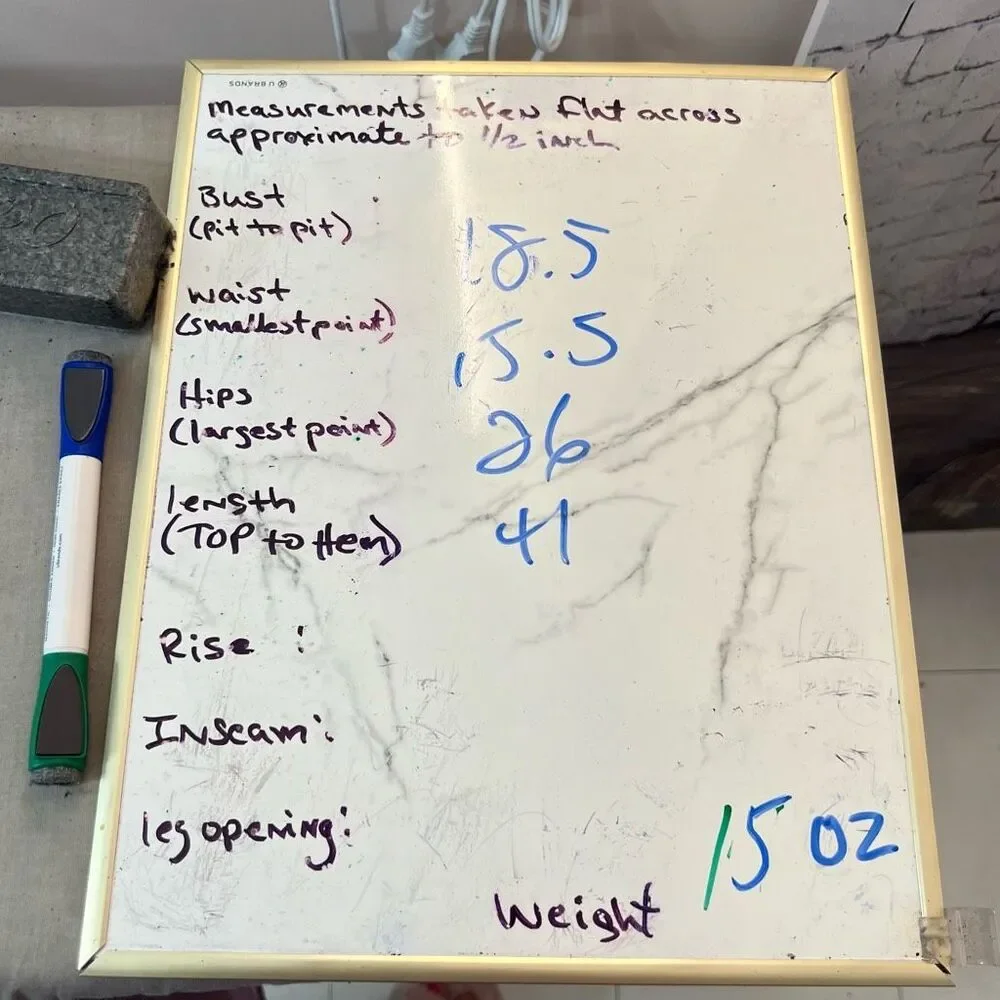 U BRANDS
measurements taken flat across
approximate to 1/2 inch
Bust
(pit to pit)
18.5
waist
(smallest point)
15.5
Hips
(largest point)
26
length
(TOP to Hem)
41
Rise :
Inseam:
leg opening:
15 oz
Weight